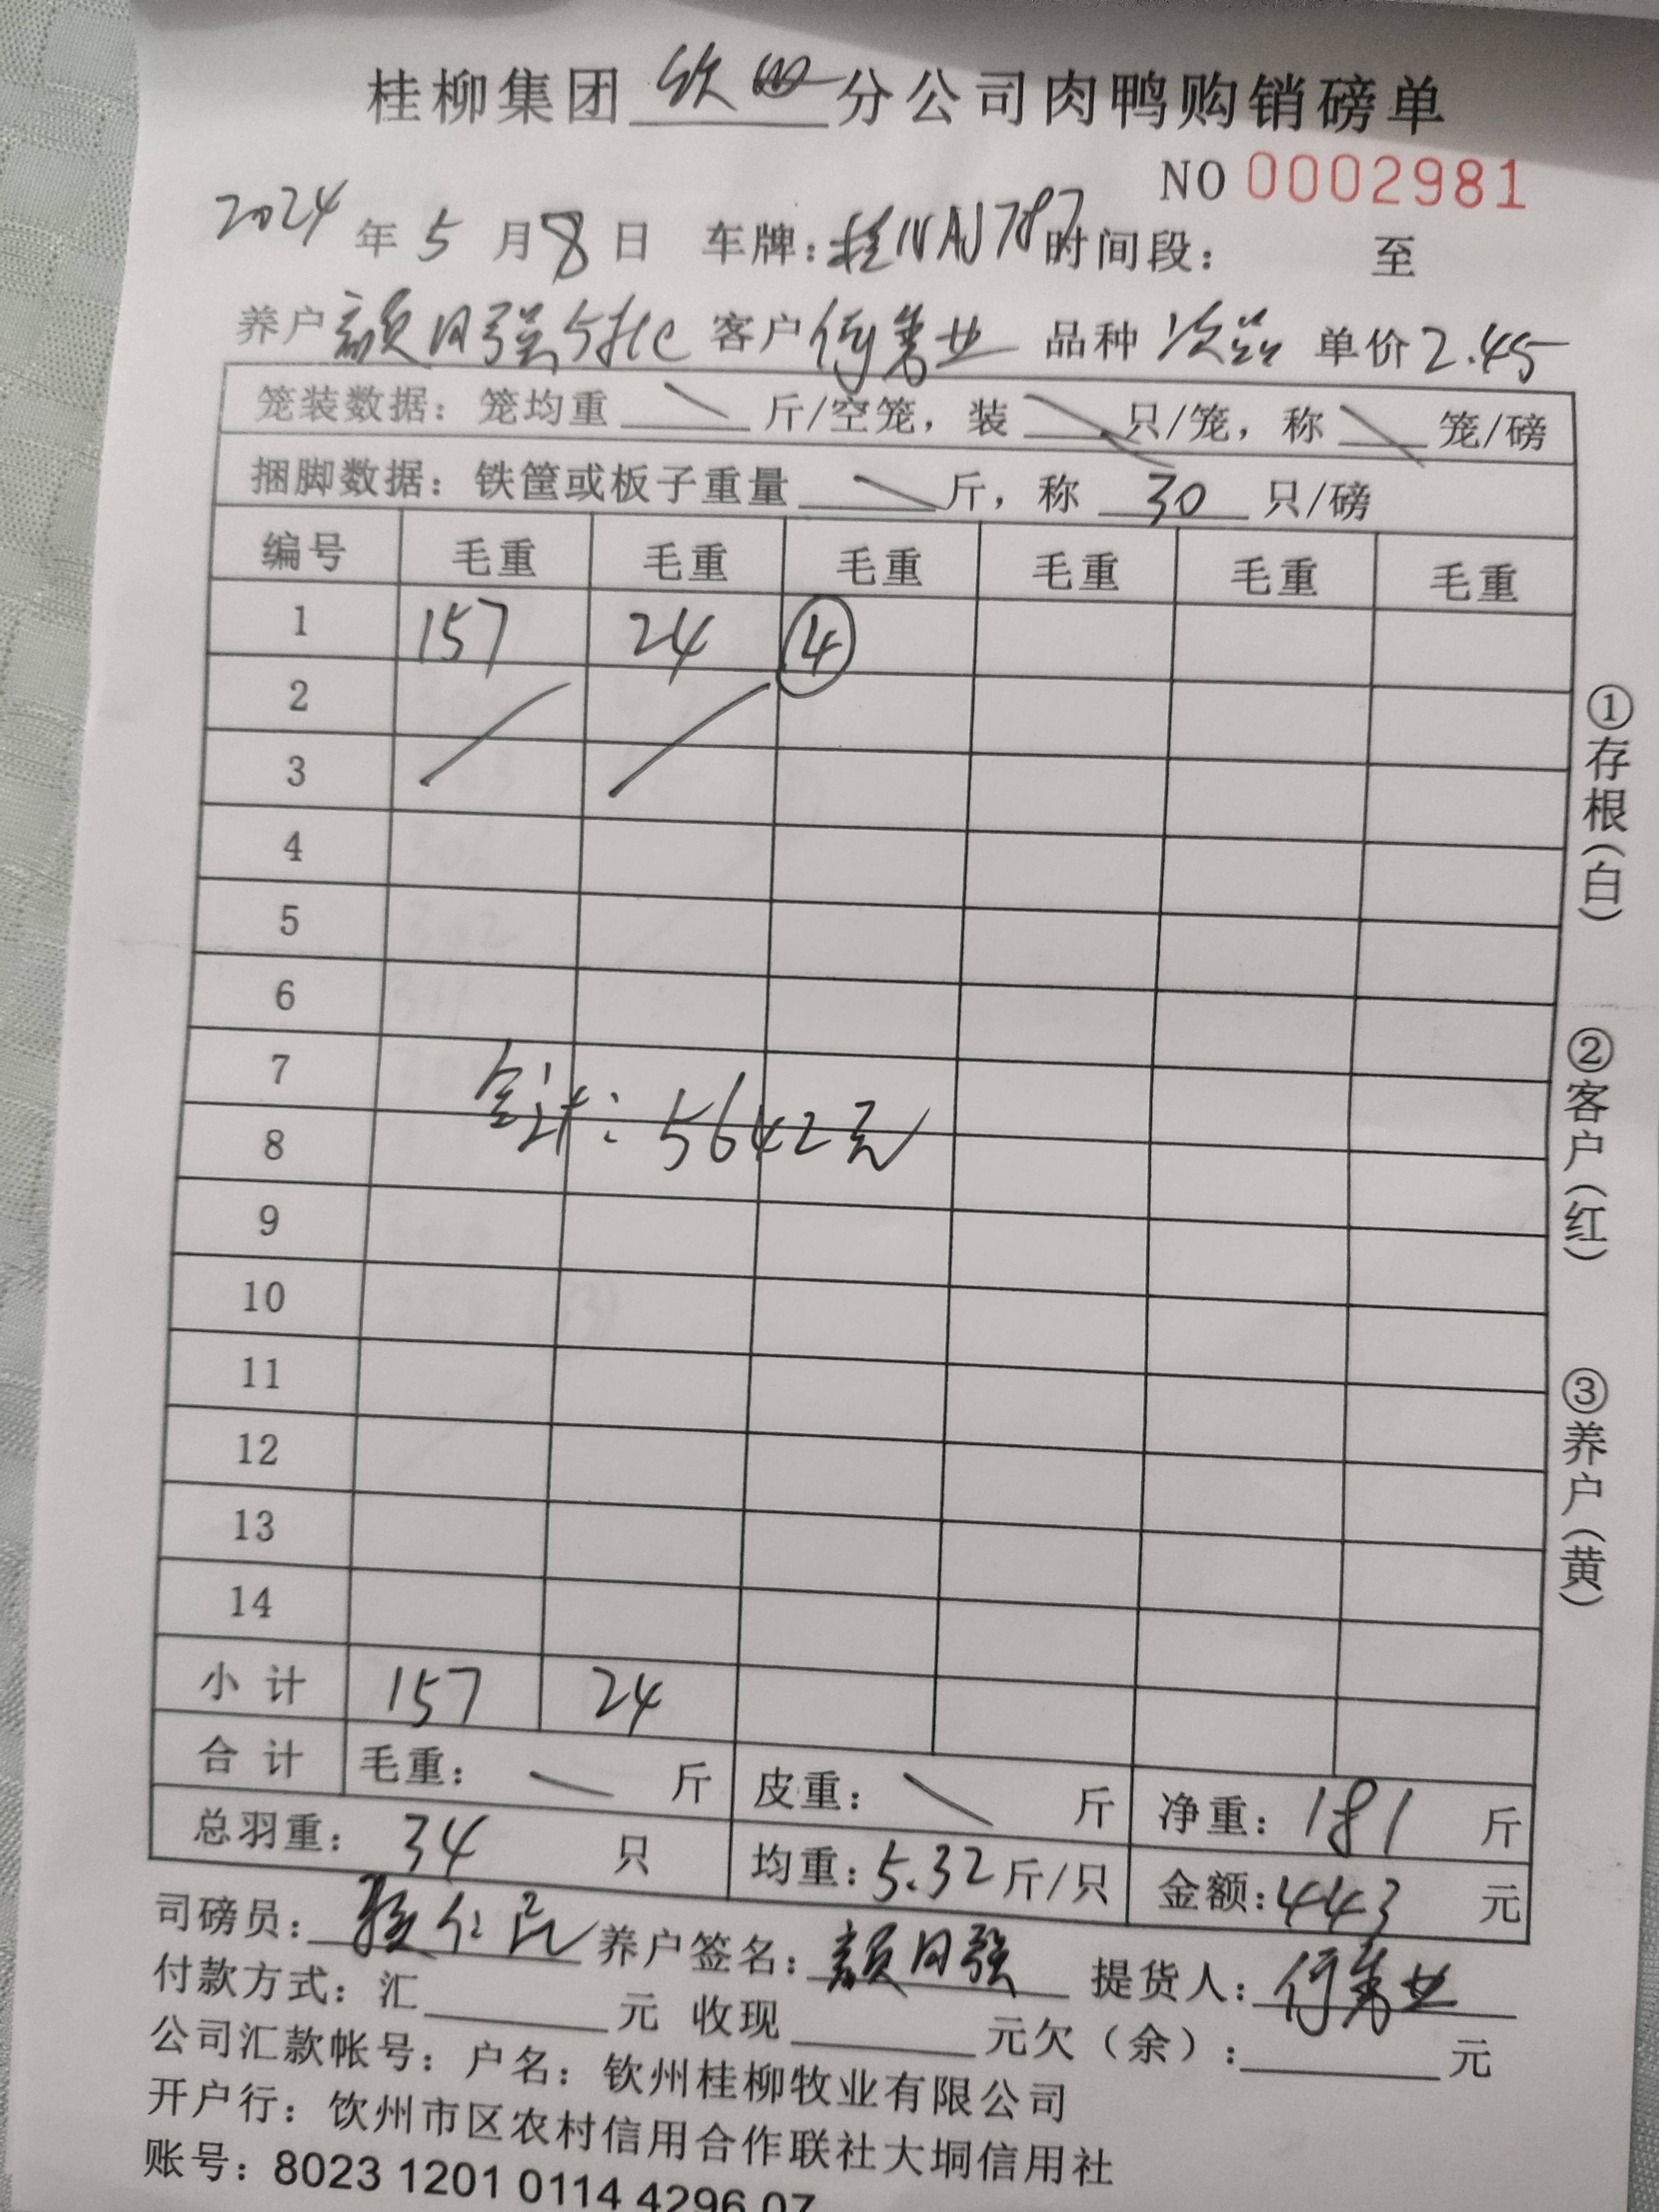 桂柳集团 钦四 分公司肉鸭购销磅单
NO 0002981
2024 年 5 月 8 日 车牌: 桂NAJ787 时间段: 至
养户 颜月强5批 客户 何秀业 品种 次品 单价 2.45
笼装数据: 笼均重 \ 斤/空笼, 装 \ 只/笼, 称 \ 笼/磅
捆脚数据: 铁筐或板子重量 \ 斤, 称 30 只/磅
编号 毛重 毛重 毛重 毛重 毛重 毛重
1 157 24 ④
2
3
4
5
6
7
合计: 5642元
8
9
10
11
12
13
14
小计 157 24
合计 毛重: \ 斤 皮重: \ 斤 净重: 181 斤
总羽重: 34 只 均重: 5.32 斤/只 金额: 443 元
司磅员: 养户签名: 颜月强 提货人: 何秀业
付款方式: 汇 元 收现 元欠(余): 元
公司汇款帐号: 户名: 钦州桂柳牧业有限公司
开户行: 钦州市区农村信用合作联社大垌信用社
账号: 8023 1201 0114 4296 07
①存根(白)
②客户(红)
③养户(黄)